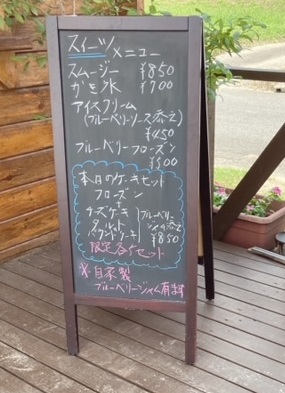 スイーツメニュー
スムージー ¥850
かき氷 ¥700
アイスクリーム
(ブルーベリーソース添え)
¥450
ブルーベリーフローズン
¥500
本日のケーキセット
フローズン
+
チーズケーキ
タルト
パウンドケーキ
(ブルーベリー
ジャム添え)
¥850
限定各5セット
※自家製
ブルーベリージャム有料